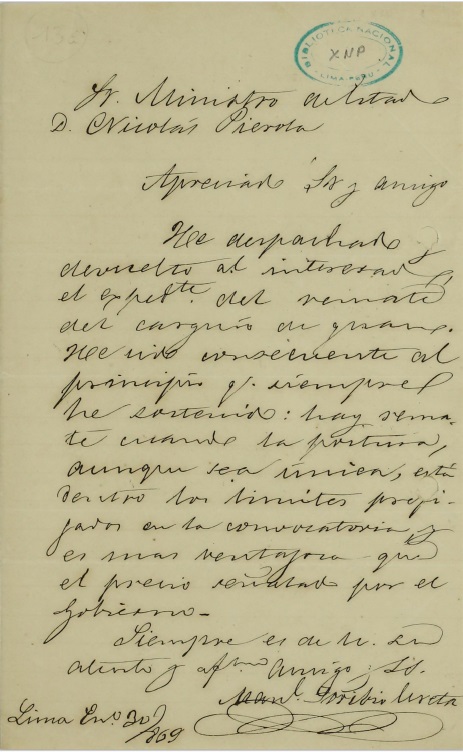 BIBLIOTECA NACIONAL
XNP
LIMA-PERU
Sr. Ministro de Estado
D. Nicolás Pierola
Apreciado Sr y amigo
He despachado y
devuelto al interesado
el expedte. del remate
del carguio de guano.
He sido consecuente al
principio q. siempre
he sostenido: hay rema-
te cuando la postura,
aunque sea única, está
dentro los limites prefi-
jados en la convocatoria y
es mas ventajosa que
el precio señalado por el
Gobierno-
Siempre es de U. su
atento y afmo amigo y SS.
Manl. Toribio Ureta
Lima Eno. 30/869